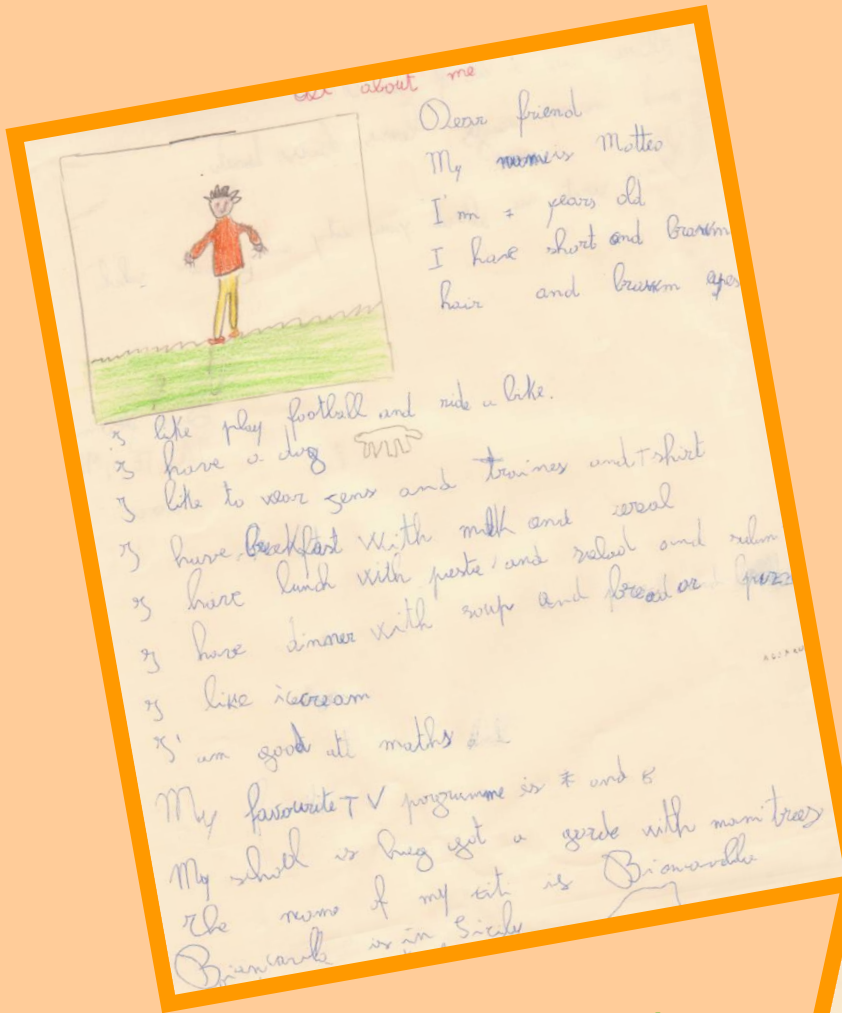 about me
Dear friend
My name is Matteo
I'm 7 years old
I have short and browm
hair and browm eyes
I like play football and ride a bike.
I have a dog
I like to wear jens and traines and T shirt
I have breekfast with milk and cereal
I have lunch with pasta and salad and
I have dinner with soup and bread or pizz
I like icecream
I'am good att maths
My favourite TV porgramme is and
My scholl is hug got a garde with mani trees
The name of my cit is Biancavilla
is in Sicily